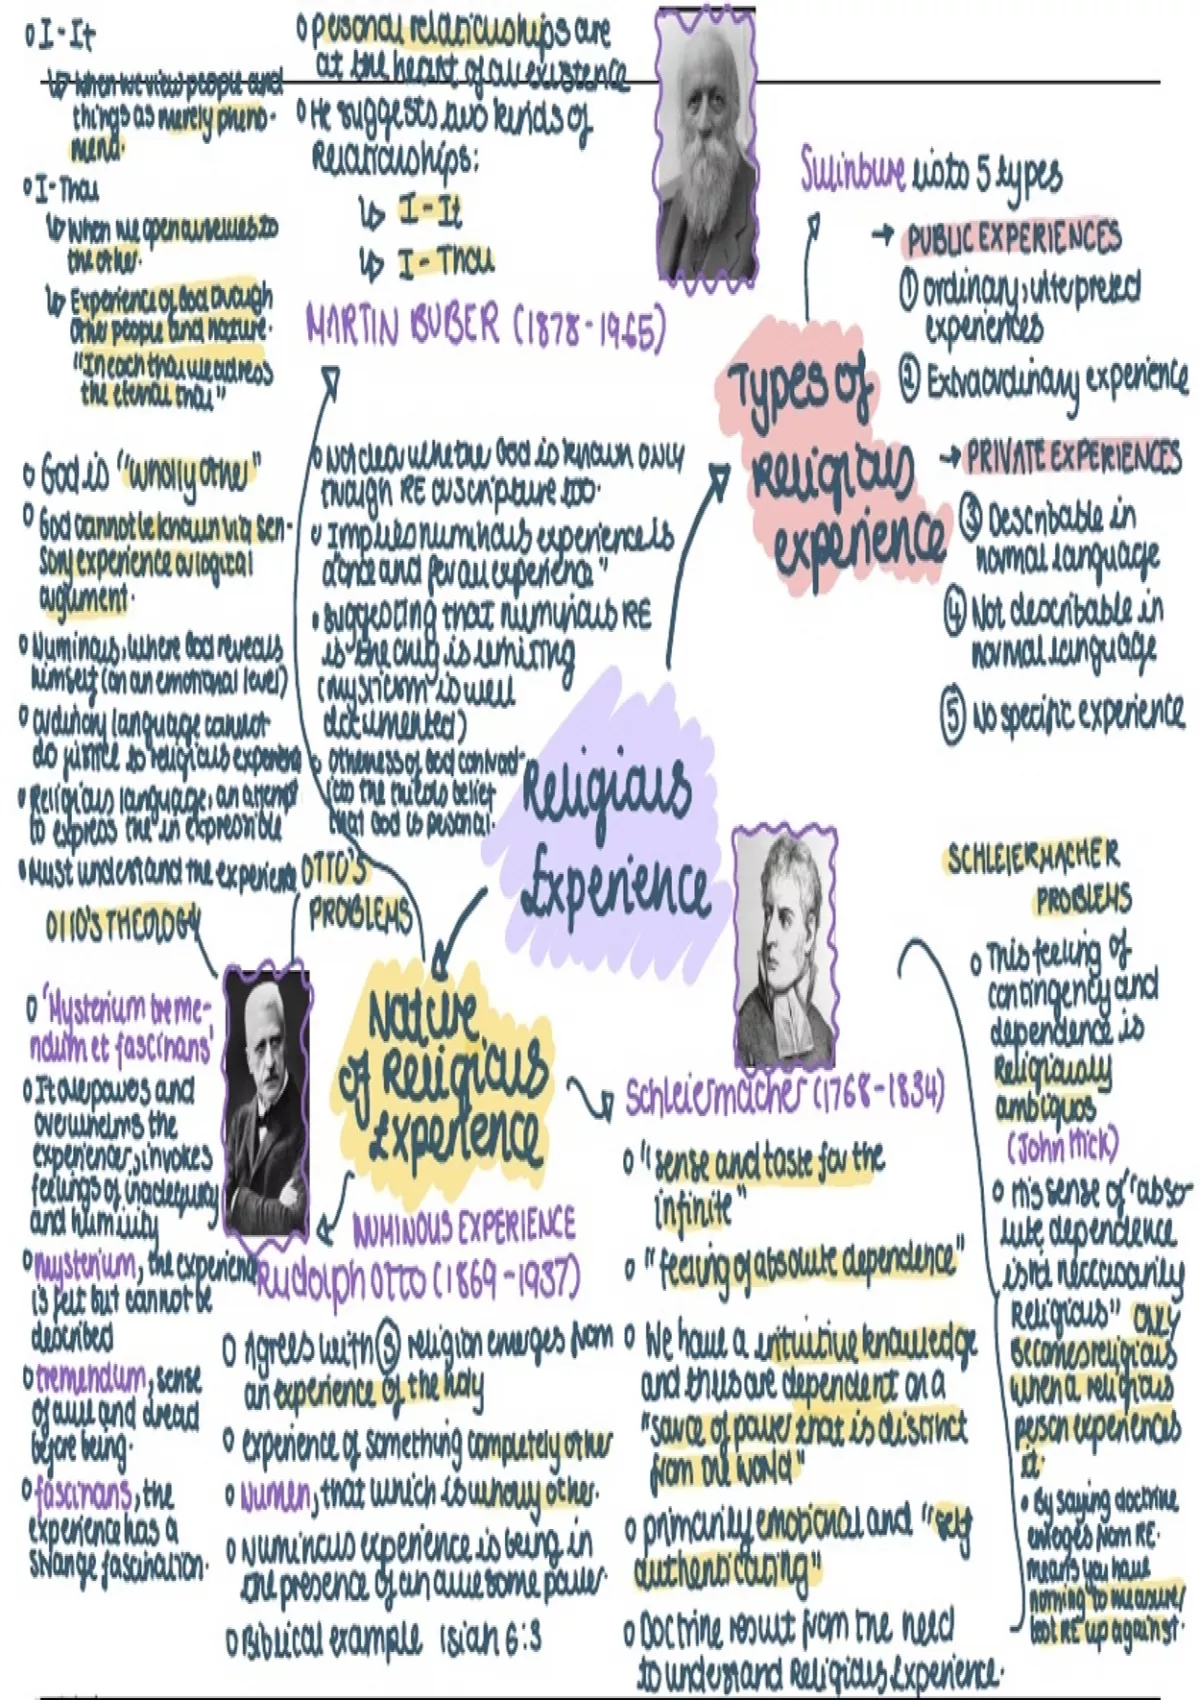 o I - It
↳ when we view people and
things as merely pheno-
mena.
o I - Thou
↳ when we open ourselves to
the other.
↳ Experience of God through
other people and nature.
"In each thou we address
the eternal thou"
o personal relationships are
at the heart of all existence
o He suggests two kinds of
Relationships:
↳ I - It
↳ I - Thou
MARTIN BUBER (1878-1965)
Swinburne lists 5 types
→ PUBLIC EXPERIENCES
① ordinary, interpreted
experiences
② Extraordinary experience
→ PRIVATE EXPERIENCES
③ Describable in
normal language
④ Not describable in
normal language
⑤ No specific experience
Types of
Religious
experience
o God is "wholly other"
o God cannot be known via sen-
sory experience or logical
argument.
o Numinous, where God reveals
himself (on an emotional level)
o ordinary language cannot
do justice to religious experience
• Religious language, an attempt
to express the in expressible
• Must understand the experience
OTTO'S THEOLOGY
o Not clear whether God is known only
through RE or scripture too.
o Implies numinous experience is
a "once and for all experience"
• suggesting that numinous RE
is the only is limiting
(mysticism is well
documented)
o Otherness of God contrad-
icts the theists belief
that God is personal.
OTTO'S
PROBLEMS
Religious
Experience
Nature
of Religious
Experience
o 'Mysterium treme-
ndum et fascinans'
o It overpowers and
overwhelms the
experiencer, invokes
feelings of inadequacy
and humility
o mysterium, the experience
is felt but cannot be
described
o tremendum, sense
of awe and dread
before being.
o fascinans, the
experience has a
strange fascination.
NUMINOUS EXPERIENCE
Rudolph Otto (1869-1937)
o Agrees with Ⓢ religion emerges from
an experience of the holy
o experience of something completely other
o Numen, that which is wholly other.
o Numinous experience is being in
the presence of an awesome power.
o Biblical example Isiah 6:3
Schleiermacher (1768-1834)
o "sense and taste for the
infinite"
o "feeling of absolute dependence"
o We have a intuitive knowledge
and thus are dependent on a
"source of power that is distinct
from the world"
o primarily emotional and "self
authenticating"
o Doctrine result from the need
to understand Religious Experience.
SCHLEIERMACHER
PROBLEMS
o This feeling of
contingency and
dependence is
Religiously
ambiguos
(John Hick)
o His sense of "abso-
lute dependence
isn't neccusarily
Religious" only
becomes religious
when a religious
person experiences
it.
• By saying doctrine
emerges from RE.
means you have
nothing to measure/
test RE up against.